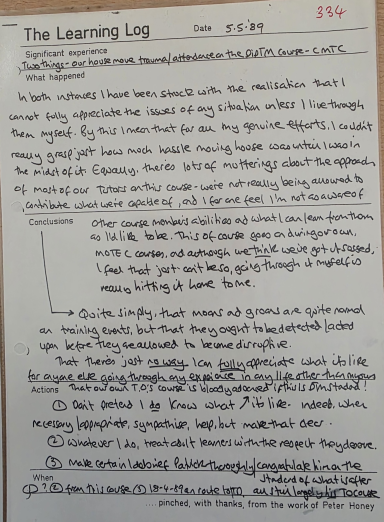 334
The Learning Log Date 5.5.'89
Significant experience
Two things - our house move trauma/attendance on the DipTM Course - CMTC
What happened
In both instances I have been struck with the realisation that I
cannot fully appreciate the issues of any situation unless I live through
them myself. By this I mean that for all my genuine efforts, I couldn't
really grasp just how much hassle moving house was until I was in
the midst of it. Equally, there's lots of mutterings about the approach
of most of our Tutors on this course - we're not really being allowed to
contribute what we're capable of, and I for one feel I'm not as aware of
Conclusions
other course members abilities and what I can learn from them
as I'd like to be. This of course goes on during our own,
MOTEC courses, and although we think we've got it sussed,
I feel that just can't be so, going through it myself is
really hitting it home to me.
Quite simply, that moans and groans are quite normal
on training events, but that they ought to be detected & acted
upon before they are allowed to become disruptive.
That there's just no way I can fully appreciate what it's like
for anyone else going through any experience in any life other than my own
Actions That our own T.O's course is bloody if this is Dm standard!
① Don't pretend I do know what it's like - indeed, when
necessary/appropriate, sympathise, help, but make that clear.
② Whatever I do, treat adult learners with the respect they deserve.
③ Make certain I debrief thoroughly/congratulate him on the
standard of what is after
When
①? ② from this course ③ 18-4-89 en route to an still largely his TO course
....pinched, with thanks, from the work of Peter Honey